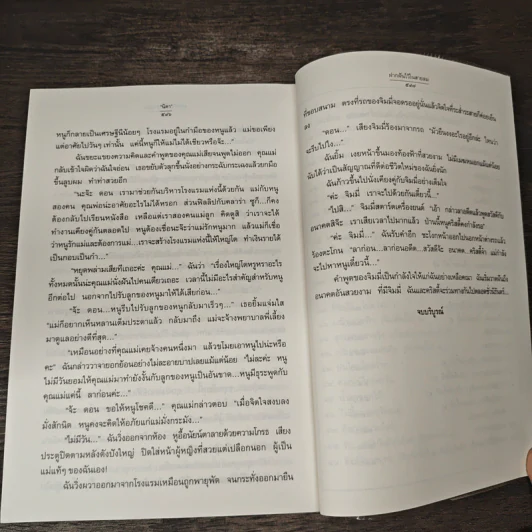 "นิดา"
๕๔๖
หนูก็กลายเป็นเศรษฐินีน้อยๆ โรงแรมอยู่ในกำมือของหนูแล้ว แม่ขอเพียง
แค่อาศัยไปวันๆ เท่านั้น แค่นี้หนูก็ให้แม่ไม่ได้เชียวหรือจ๊ะ..."
ฉันขยะแขยงความคิดและคำพูดของคุณแม่เสียจนพูดไม่ออก คุณแม่
กลับเข้าใจผิดว่าฉันใจอ่อน เธอขยับตัวลุกขึ้นนั่งอย่างกระฉับกระเฉงแล้วยกมือ
ขึ้นสูบผม ทำท่าสวยอีก
"นะจ๊ะ ดอน เรามาช่วยกันบริหารโรงแรมแห่งนี้ด้วยกัน แม่กับหนู
สองคน คุณพ่อน่ะอาศัยอะไรไม่ได้หรอก ส่วนฟิลลิปกับคลาร่า ชู้กี้...ก็คง
ต้องกลับไปเรียนหนังสือ เหลือแต่เราสองคนแม่ลูก คิดดูสิ ว่าเราจะได้
ทำงานเคียงคู่กันตลอดไป หนูต้องเชื่อนะจ๊ะว่าแม่รักหนูมาก แล้วแม่ก็เชื่อ
ว่าหนูรักแม่และต้องการแม่...เราจะสร้างโรงแรมแห่งนี้ให้ใหญ่โต ทำเงินรายได้
เป็นกอบเป็นกำ..."
"หยุดพล่ามเสียทีเถอะค่ะ คุณแม่..." ฉันว่า "เรื่องใหญ่โตหรูหราอะไร
ทั้งหมดนั้นน่ะคุณแม่นั่งฝันไปคนเดียวเถอะ เวลานี้ไม่มีอะไรสำคัญสำหรับหนู
อีกต่อไป นอกจากไปรับลูกของหนูมาให้ได้เสียก่อน..."
"จ๊ะ ดอน...หนูรีบไปรับลูกของหนูกลับมาเร็วๆ..." เธอยิ้มแจ่มใส
"แม่ก็อยากเห็นหลานเต็มประดาแล้ว กลับมาถึง แม่จะจ้างพยาบาลพี่เลี้ยง
มาดูแลอย่างดีที่สุด..."
"เหมือนอย่างที่คุณแม่เคยจ้างคนหนึ่งมา แล้วขโมยเอาหนูไปน่ะหรือ
คะ" ฉันกล่าววาจายอกย้อนอย่างไม่ละอายบาปเลยแม้แต่น้อย "ไม่ละค่ะ หนู
ไม่มีวันยอมให้คุณแม่มาทำยังงั้นกับลูกของหนูเป็นอันขาด...หนูมีธุระพูดกับ
คุณแม่แค่นี้ ลาก่อนค่ะ..."
"จ๊ะ ดอน ขอให้หนูโชคดี..." คุณแม่กล่าวตอบ "เมื่อจิตใจสงบลง
มั่งสักนิด หนูคงจะคิดให้อภัยแก่แม่มั่งกระมัง..."
"ไม่มีวัน..." ฉันวิ่งออกจากห้อง หูอื้อนัยน์ตาลายด้วยความโกรธ เสียง
ประตูปิดตามหลังดังปังใหญ่ ปิดใส่หน้าผู้หญิงที่สวยแต่เปลือกนอก ผู้เป็น
แม่แท้ๆ ของฉันเอง!
ฉันวิ่งผวาออกมาจากโรงแรมเหมือนถูกพายุพัด จนกระทั่งออกมายืน
๕๔๗
ที่ขอบสนาม ตรงที่รถของจิมมี่จอดรออยู่นั่นแล้วจิตใจที่ระส่ำระสายก็ค่อยเย็น
ลง
"ดอน..." เสียงจิมมี่ร้องมาจากรถ "มัวยืนงงอะไรอยู่อีกน่ะ ไหนว่า
จะรีบไปไง..."
ฉันยิ้ม เงยหน้าขึ้นมองท้องฟ้าที่สวยงาม
ฉันก้าวขึ้นไปนั่งเคียงคู่กับจิมมี่อย่างเต็มใจ
"ค่ะ จิมมี่ เราจะไปด้วยกันเดี๋ยวนี้..."
"ไปสิ..." จิมมี่สตาร์ตเครื่องยนต์
"ค่ะ จิมมี่..." ฉันรับคำอีก
จะไปหาหนูเดี๋ยวนี้..."
คำพูดของจิมมี่เป็นกำลังใจให้แก่ฉันอย่างเหลือคณา
จบบริบูรณ์